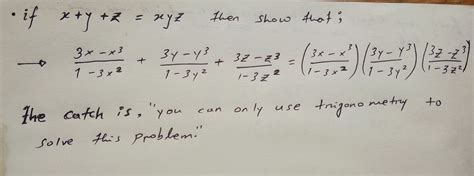 • if x+y+z = xyz then show that ;
→ 3x-x³/1-3x² + 3y-y³/1-3y² + 3z-z³/1-3z² = (3x-x³/1-3x²)(3y-y³/1-3y²)(3z-z³/1-3z²)
The catch is, "you can only use trigonometry to
solve this problem."